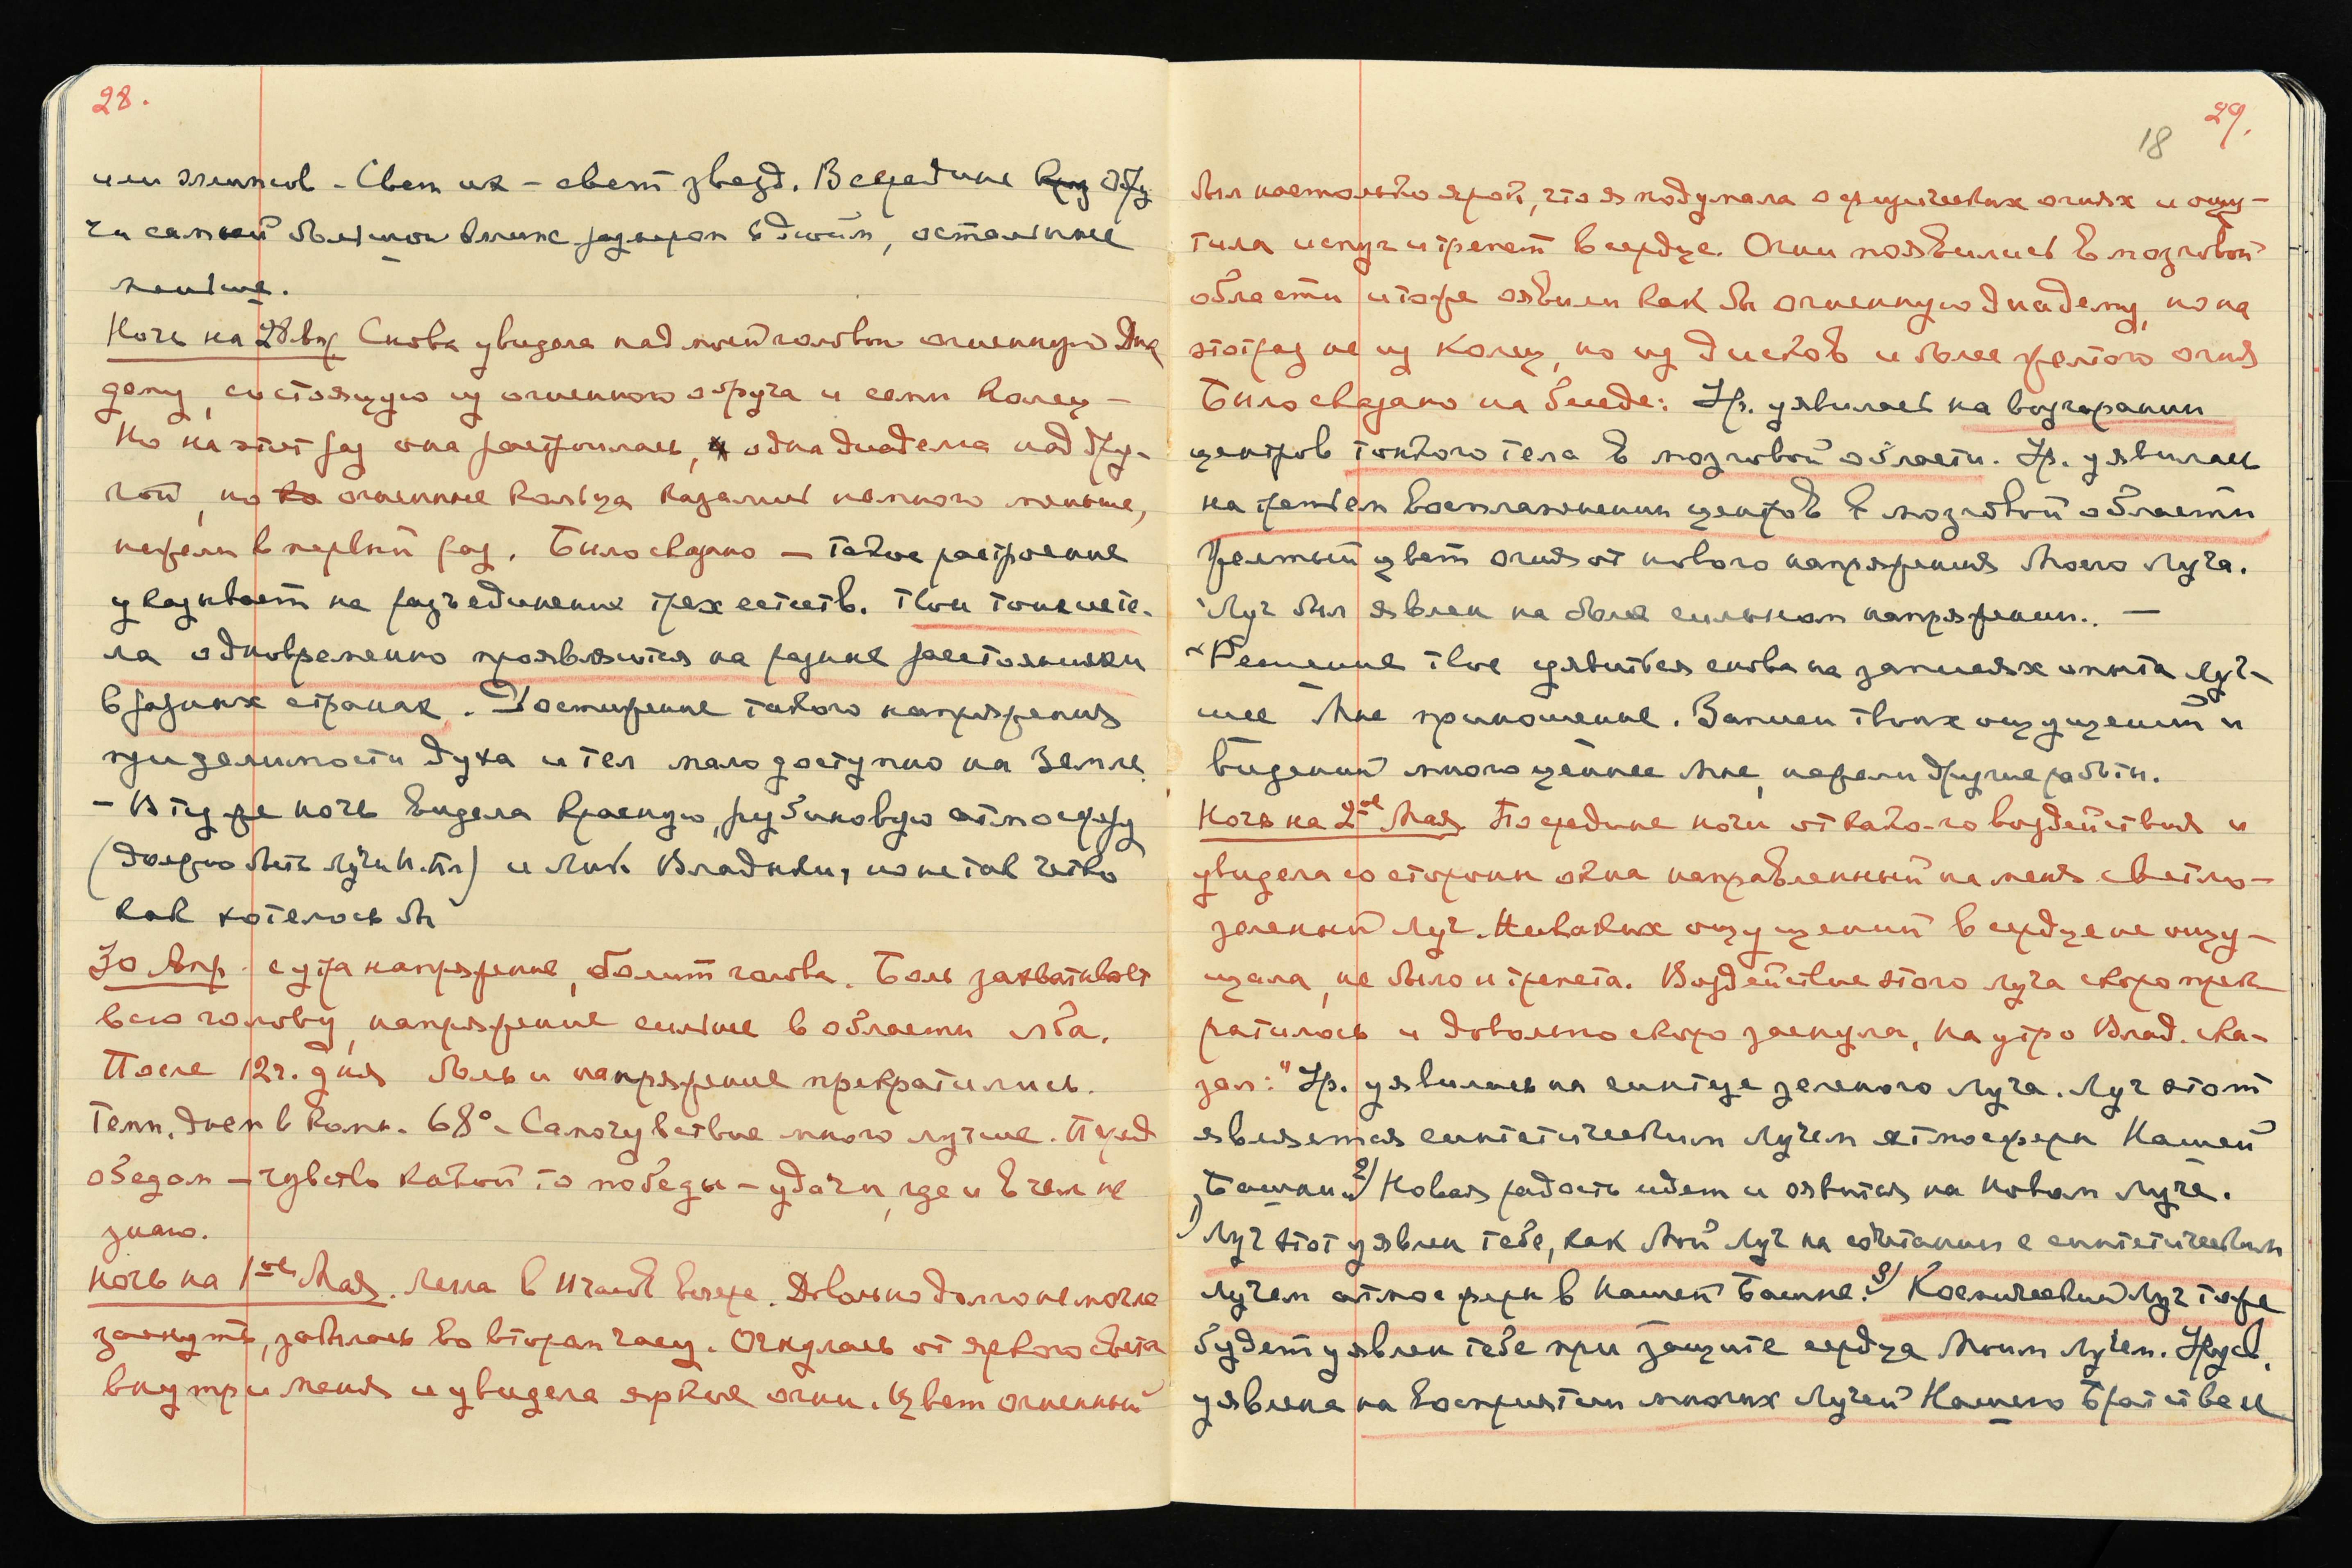 28.
или эллипсов – Свет их – свет звезд. В середине обру
ча самый большой эллипс размером в дюйм, остальные
меньше.
Ночь на 28 Снова увидела над моей головой огненную Диа
дему, состоящую из огненного обруча и семи колец –
Но на этот раз она растроилась, одна диадема над дру-
гой, но огненные кольца казались немного меньше,
нежели в первый раз. Было сказано – такое растроение
указывает на разъединение трех естеств. Твои тонкие те-
ла одновременно проявляются на разных расстояниях и
в разных странах. Достижение такого напряжения
при делимости духа и тел мало доступно на Земле.
– В ту же ночь видела красную, рубиновую атмосферу
(должно быть лучи Н.Пл) и Лик Владыки, но не так четко
как хотелось бы
30 Апр. с утра напряжение, болит голова. Боль захватывает
всю голову, напряжение сильнее в области лба.
После 12 ч. дня боль и напряжение прекратились.
Темп. днем в комн. 68° – Самочувствие много лучше. Перед
обедом – чувство какой то победы – удачи, где и в чем не
знаю.
Ночь на 1ое Мая. Легла в 11 часов вечера. Довольно долго не могла
заснуть, забылась во втором часу. Очнулась от яркого света
внутри меня и увидела яркие огни. Цвет огненный
29.
18
был настолько ярок, что я подумала о физических огнях и ощу-
тила испуг и трепет в сердце. Огни появились в мозговой
области и тоже явили как бы огненную диадему, но на
этот раз не из колец, но из дисков и более желтого огня
Было сказано на беседе: Ур. уявилась на возгорании
центров тонкого тела в мозговой области. Ур. уявилась
на третьем воспламенении центров в мозговой области
Желтый цвет огня от нового напряжения Моего Луча.
Луч был явлен на более сильном напряжении. –
"Решение твое уявиться снова на записях опыта луч-
шее Мне приношение. Записи твоих ощущений и
видений много ценнее Мне, нежели другие работы.
Ночь на 2ое Мая Посредине ночи от како-го воздействия и
увидела со стороны окна направленный на меня светло-
зеленый луч. Никаких ощущений в сердце не ощу-
щала, не было и трепета. Воздействие этого луча скоро прек
ратилось и довольно скоро заснула, на утро Влад. ска-
зал: "Ур. уявилась на синтезе зеленого луча. Луч этот
является синтетическим лучем атмосферы Нашей
Башни. 2) Новая радость идет и явится на новом Луче.
1) Луч этот уявлен тебе, как Мой Луч на сочетании с синтетическим
лучем атмосферы в Нашей Башне. 3) Космический Луч тоже
будет уявлен тебе при защите сердца Моим Лучем. Урусв.
уявлена на восприятии многих Лучей Нашего Братства и